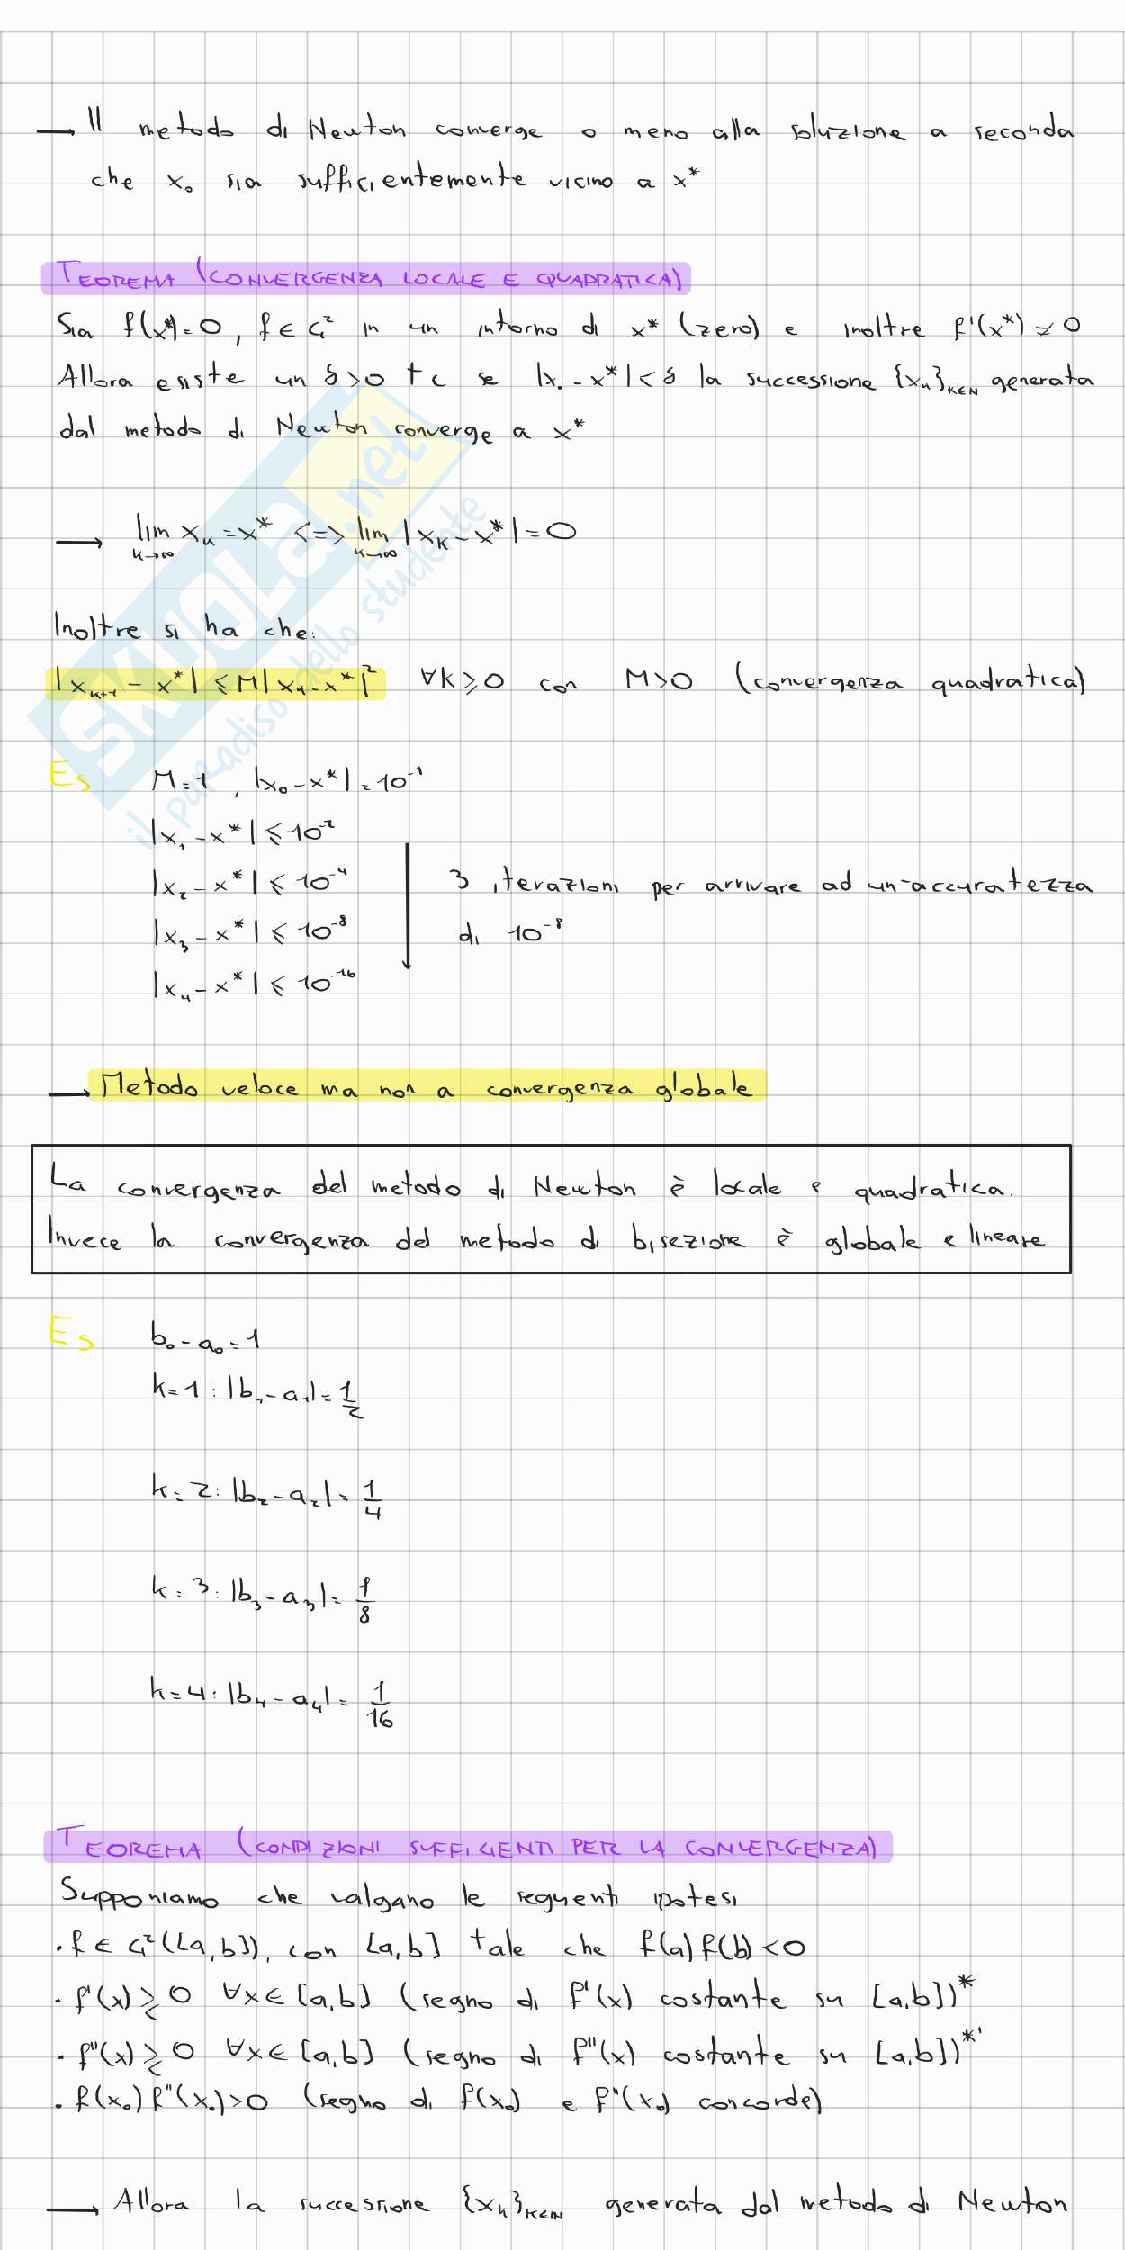 → Il metodo di Newton converge o meno alla soluzione a seconda
che x₀ sia sufficientemente vicino a x*
TEOREMA (CONVERGENZA LOCALE E QUADRATICA)
Sia f(x*)=0, f ∈ C² in un intorno di x* (zero) e inoltre f'(x*) ≠ 0
Allora esiste un δ>0 t c se |x₀ - x*| < δ la successione {xₖ}ₖ∈ℕ generata
dal metodo di Newton converge a x*
→ lim k→∞ xₖ = x* <=> lim k→∞ |xₖ - x*| = 0
Inoltre si ha che:
|xₖ₊₁ - x*| ≤ M|xₖ - x*|² ∀k ≥ 0 con M>0 (convergenza quadratica)
Es M=1, |x₀ - x*| = 10⁻¹
|x₁ - x*| ≤ 10⁻²
|x₂ - x*| ≤ 10⁻⁴ 3 iterazioni per arrivare ad un'accuratezza
|x₃ - x*| ≤ 10⁻⁸ di 10⁻⁸
|x₄ - x*| ≤ 10⁻¹⁶
→ Metodo veloce ma non a convergenza globale
La convergenza del metodo di Newton è locale e quadratica.
Invece la convergenza del metodo di bisezione è globale e lineare
Es b₀ - a₀ = 1
k=1: |b₁ - a₁| = 1/2
k=2: |b₂ - a₂| = 1/4
k=3: |b₃ - a₃| = 1/8
k=4: |b₄ - a₄| = 1/16
TEOREMA (CONDIZIONI SUFFICIENTI PER LA CONVERGENZA)
Supponiamo che valgano le seguenti ipotesi
· f ∈ C²([a,b]), con [a,b] tale che f(a)f(b) < 0
· f'(x) ≷ 0 ∀x ∈ [a,b] (segno di f'(x) costante su [a,b])*
· f''(x) ≷ 0 ∀x ∈ [a,b] (segno di f''(x) costante su [a,b])*'
· f(x₀) f''(x₀) > 0 (segno di f(x₀) e f''(x₀) concorde)
→ Allora la successione {xₖ}ₖ∈ℕ generata dal metodo di Newton
SKUOLA.net
il paradiso dello studente